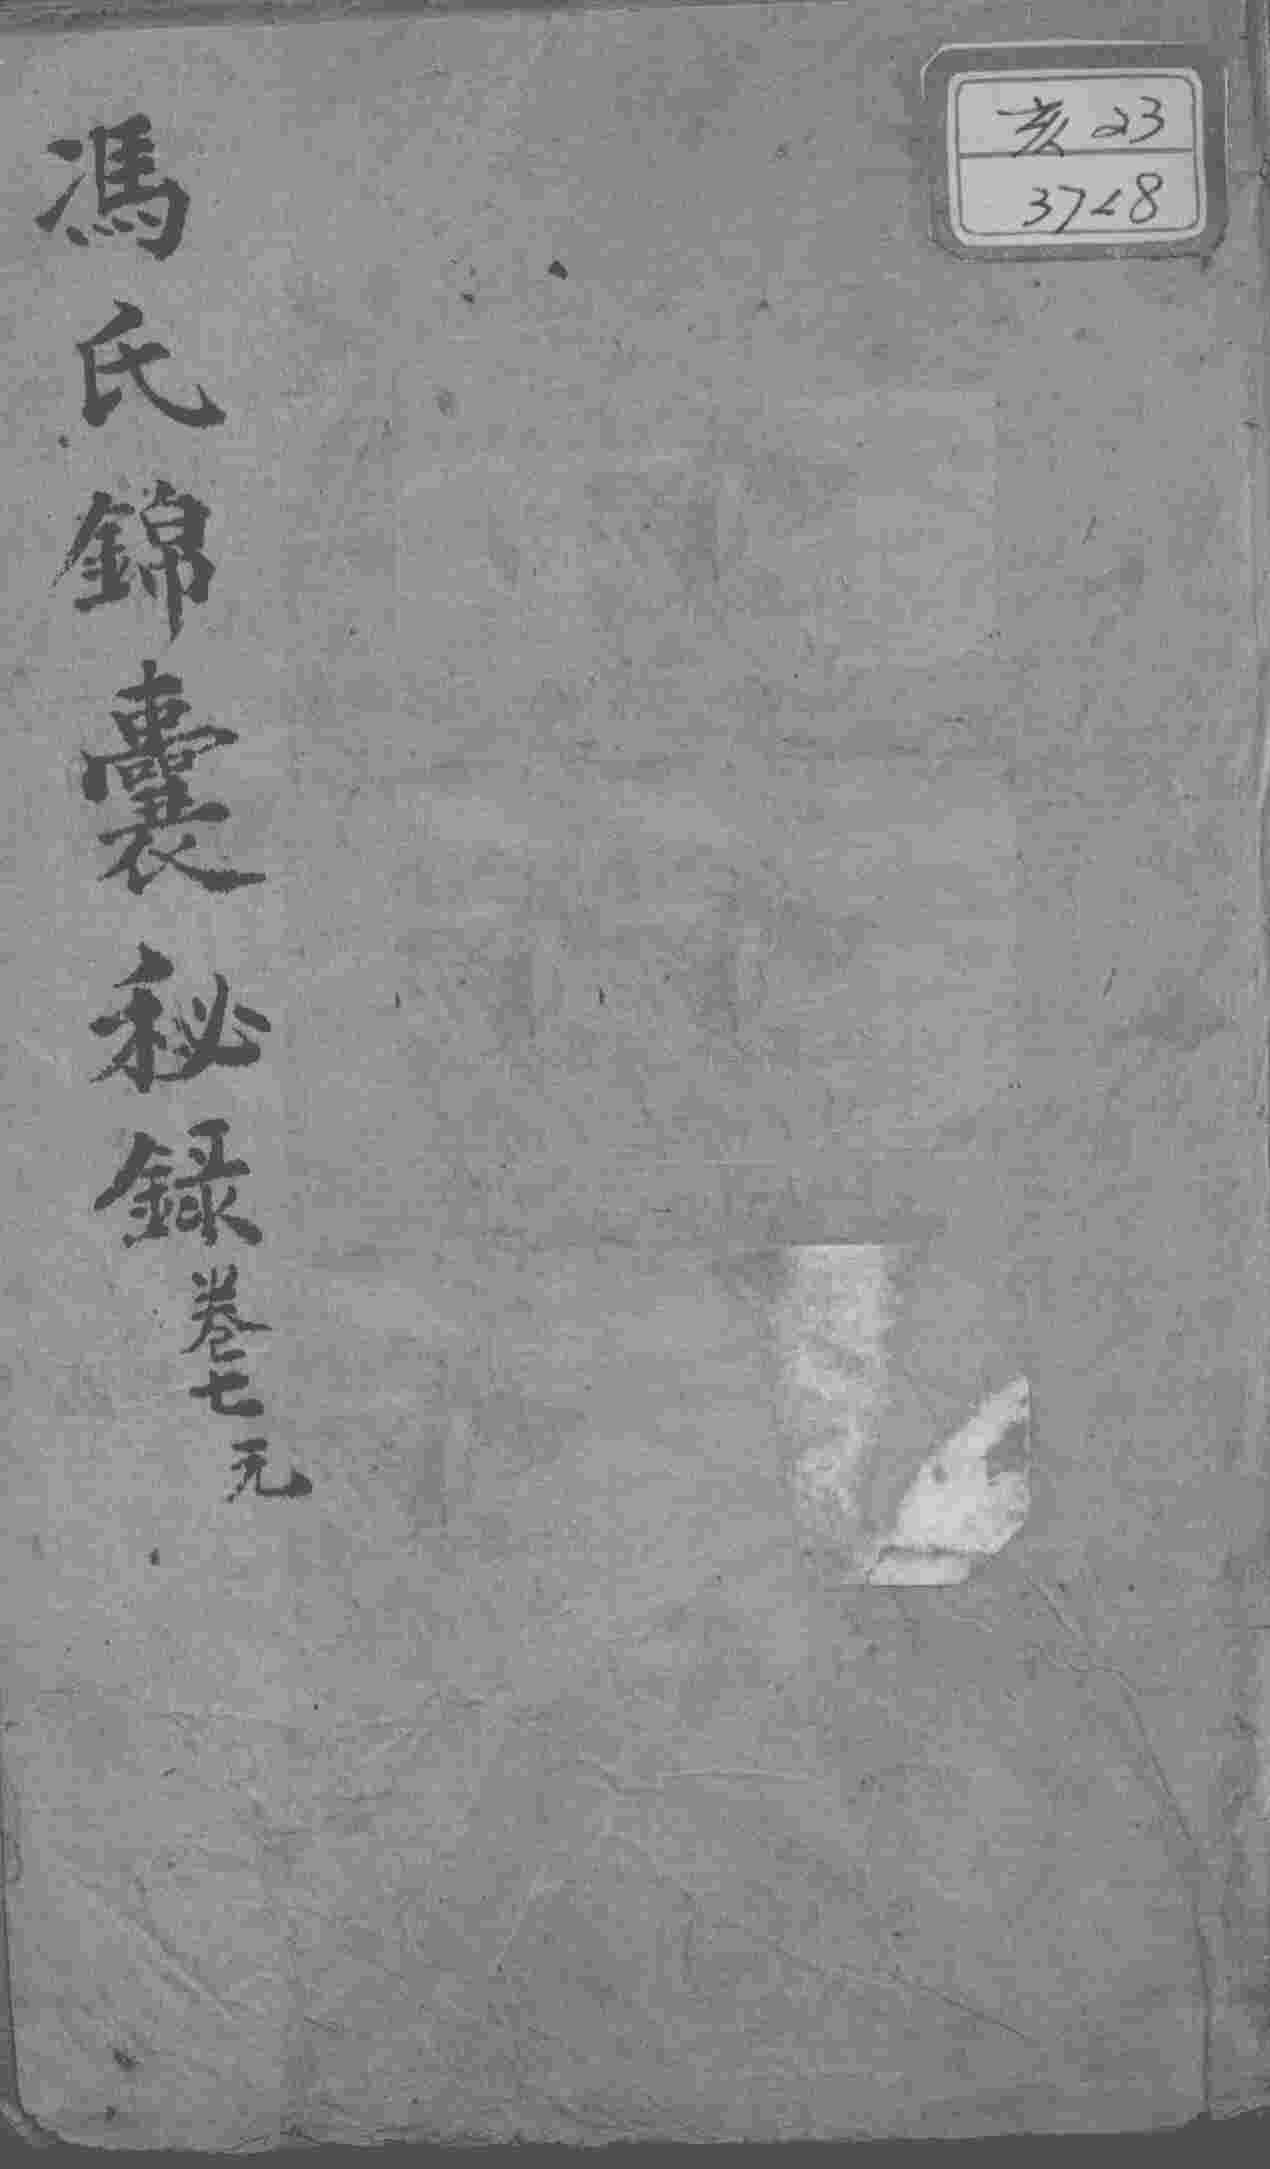 亥23
3728
馮氏錦囊秘録卷七元